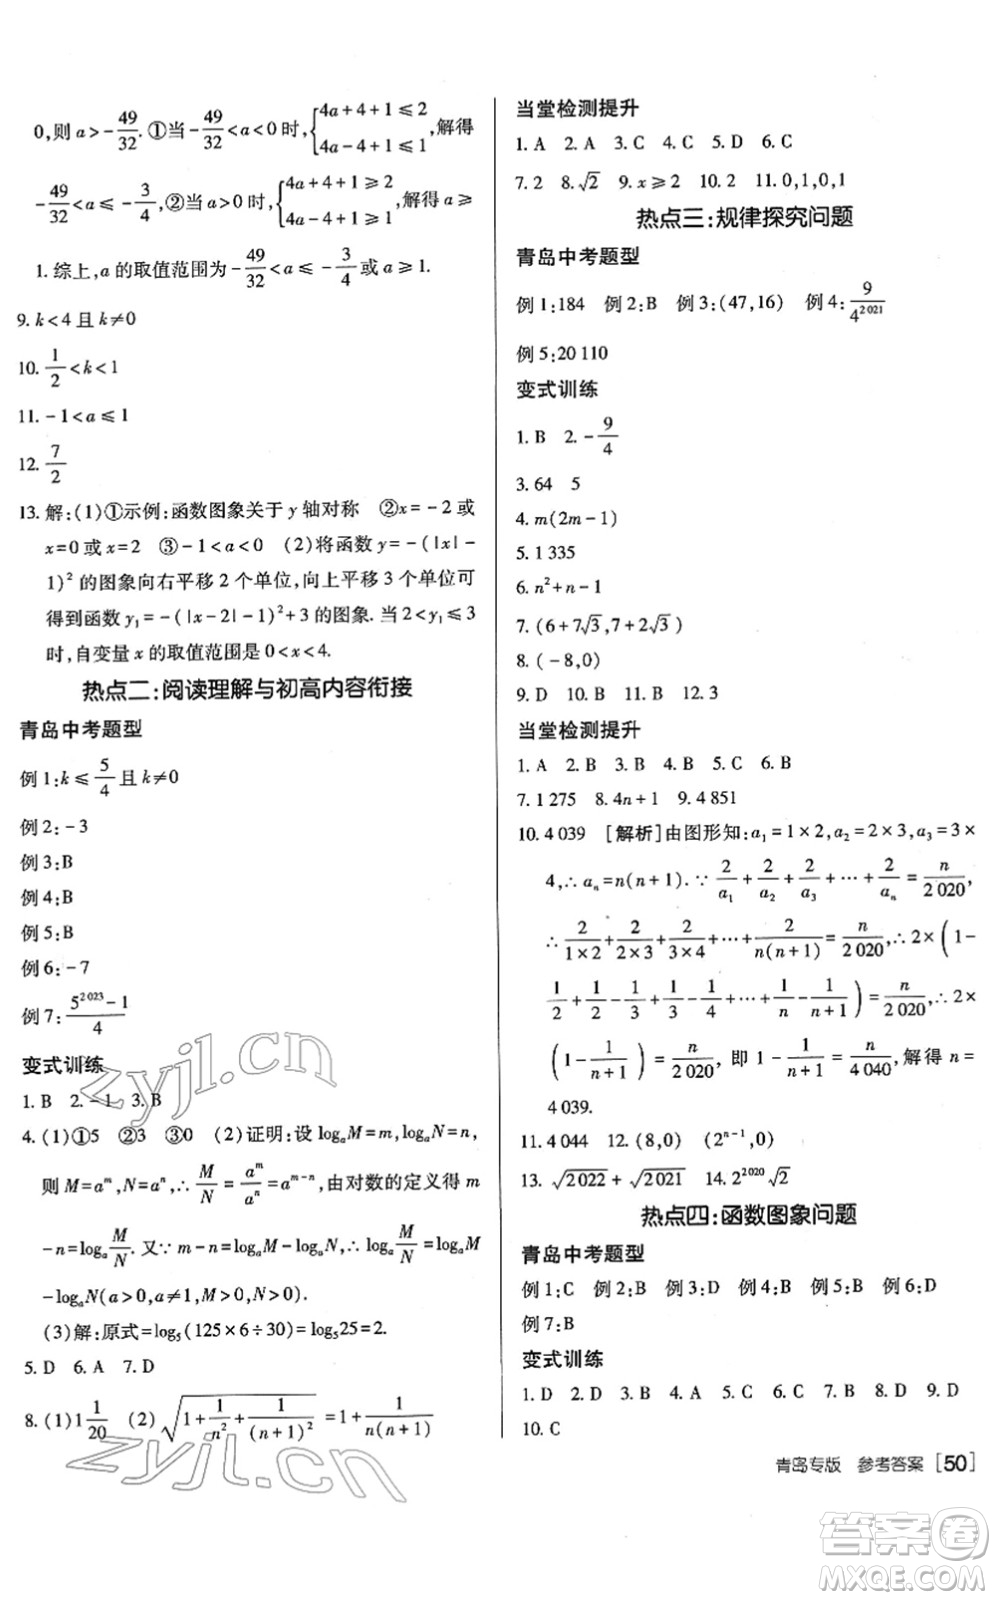 0,则 a>-49/32.①当-49/32<a<0时,{4a+4+1≤2 4a-4+1≤1,解得
-49/32<a≤-3/4,②当a>0时,{4a+4+1≥2 4a-4+1≥1,解得 a≥
1.综上,a 的取值范围为-49/32<a≤-3/4或 a≥1.
9. k<4且 k≠0
10. 1/2<k<1
11. -1<a≤1
12. 7/2
13. 解:(1)①示例:函数图象关于 y 轴对称 ②x=-2或
x=0或 x=2 ③-1<a<0 (2)将函数 y=-(|x|-
1)²的图象向右平移2个单位,向上平移3个单位可
得到函数 y₁=-(|x-2|-1)²+3的图象.当2<y₁≤3
时,自变量 x 的取值范围是0<x<4.
热点二:阅读理解与初高内容衔接
青岛中考题型
例1:k≤5/4且 k≠0
例2:-3
例3:B
例4:B
例5:B
例6:-7
例7:(5²⁰²³-1)/4
变式训练
1. B 2. -1 3. B
4. (1)①5 ②3 ③0 (2)证明:设 logₐM=m,logₐN=n,
则 M=aᵐ,N=aⁿ,∴M/N=aᵐ/aⁿ=aᵐ⁻ⁿ,由对数的定义得 m
-n=logₐM/N.又∵m-n=logₐM-logₐN,∴logₐM/N=logₐM
-logₐN(a>0,a≠1,M>0,N>0).
(3)解:原式=log₅(125×6÷30)=log₅25=2.
5. D 6. A 7. D
8. (1)1 1/20 (2)√(1+1/n²+1/(n+1)²)=1+1/n(n+1)
当堂检测提升
1. A 2. A 3. C 4. C 5. D 6. C
7. 2 8. √2 9. x≥2 10. 2 11. 0,1,0,1
热点三:规律探究问题
青岛中考题型
例1:184 例2:B 例3:(47,16) 例4:9/4²⁰²¹
例5:20 110
变式训练
1. B 2. -9/4
3. 64 5
4. m(2m-1)
5. 1 335
6. n²+n-1
7. (6+7√3,7+2√3)
8. (-8,0)
9. D 10. B 11. B 12. 3
当堂检测提升
1. A 2. B 3. B 4. B 5. C 6. B
7. 1 275 8. 4n+1 9. 4 851
10. 4 039 [解析]由图形知:a₁=1×2,a₂=2×3,a₃=3×
4,∴aₙ=n(n+1).∵2/a₁+2/a₂+2/a₃+…+2/aₙ=n/2 020,
∴2/1×2+2/2×3+2/3×4+…+2/n(n+1)=n/2 020,∴2×(1-
1/2+1/2-1/3+1/3-1/4+…+1/n-1/n+1)=n/2 020,∴2×
(1-1/n+1)=n/2 020,即1-1/n+1=n/4 040,解得 n=
4 039.
11. 4 044 12. (8,0) (2ⁿ⁻¹,0)
13. √2022+√2021 14. 2²⁰²⁰√2
热点四:函数图象问题
青岛中考题型
例1:C 例2:B 例3:D 例4:B 例5:B 例6:D
例7:B
变式训练
1. D 2. D 3. B 4. C 5. C 6. C 7. B 8. D 9. D
10. C
青岛专版 参考答案 [50]
zyjl.cn
zyjl.cn
答案卷
MXQE.COM